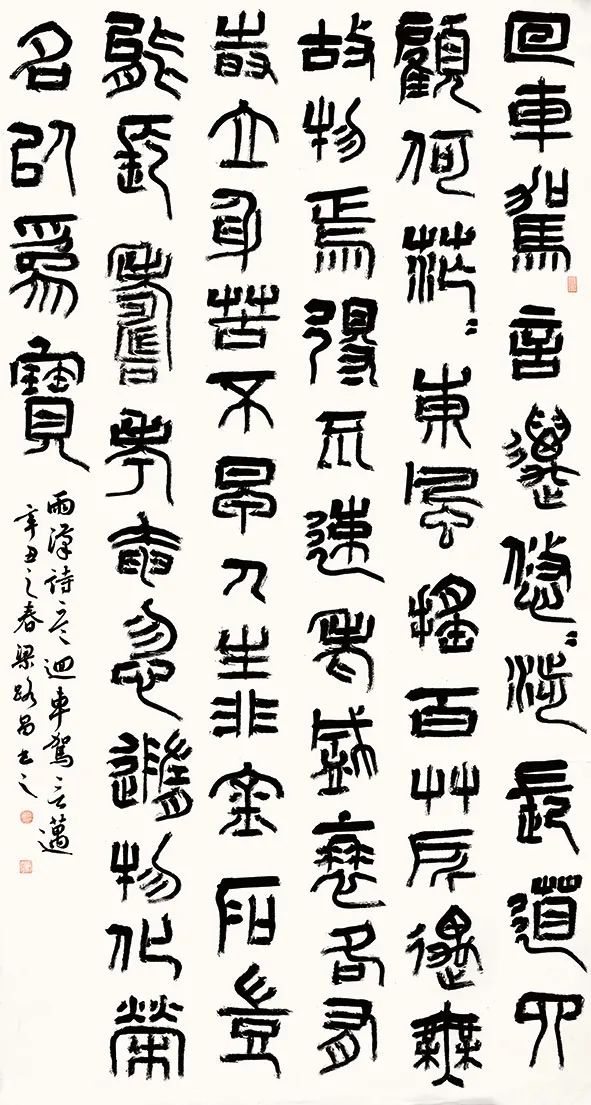 回車駕言邁悠〻涉長道四
顧何茫〻東風搖百艸所遇無
故物焉得不速老盛衰各有
旹立身苦不早人生非金石豈
能長壽考奄忽隨物化榮
名以爲寶
兩漢詩 迴車駕言邁
辛丑之春梁路昌書之